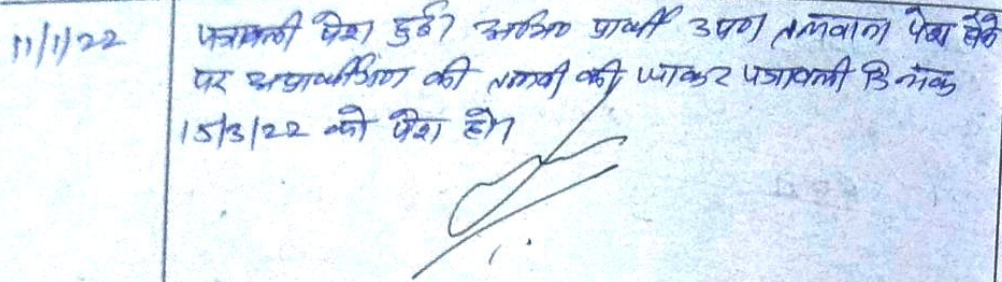 11/1/22 पत्रावली पेश हुई। अभि० प्रार्थी उप० तलवाना पेश होने
पर अप्रार्थीगण की तलबी की जाकर पत्रावली दिनांक
15/3/22 को पेश हो।